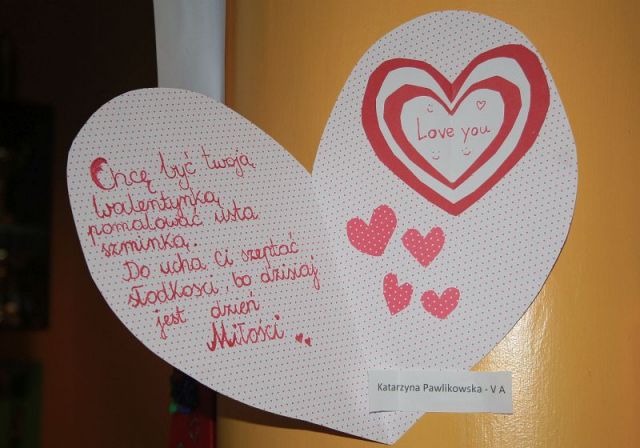 Chcę być twoją
walentynką
pomalować usta
szminką.
Do ucha Ci szeptać
słodkości, bo dzisiaj
jest dzień
Miłości
Love you
Katarzyna Pawlikowska - V A